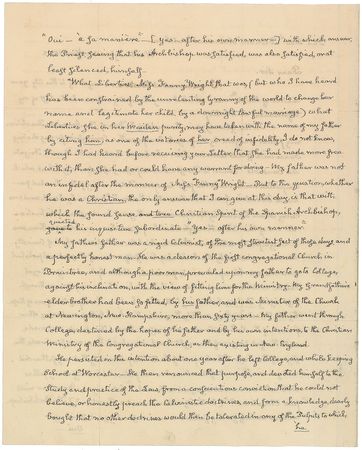 "Oui — a sa maniere" — [Yes — after his own manner —] with which answer,
the Priest seeing that his Archbishop was satisfied, was also satisfied, or at
least silenced, himself.
What Liberties Miss Fanny Wright that was, (but who I have heard
has been constrained by the unrelenting tyranny of the world to change her
name and legitimate her child by a downright lawful marriage) what
Liberties She in her purity, may have taken with the name of my father
by citing him, as one of the votaries of her creed of infidelity, I do not know,
though I had heard before receiving your Letter that She had made more free
with it, than She had or could have any warrant for doing — My father was not
an infidel after the manner of Miss Fanny Wright — But to the question, whether
he was a Christian, the only answer that I can give at this day, is that with
which the found sense and true Christian Spirit of the Spanish Archbishop,
quieted
his inquisitive Subordinate — "Yes" — after his own manner.
My father's father was a rigid Calvinist, of the most strictest sect of those days and
a perfectly honest man. He was a deacon of the first congregational Church in
Braintree, and although a poor man, prevailed upon my father to go to College,
against his inclination, with the view of fitting him for the Ministry. My Grandfather's
elder brother had been so fitted, by his father, and was Minister of the Church
at Newington, New-Hampshire, more than sixty years — My father went through
College, destined by the hopes of his father and by his own intentions to the Christian
Ministry of the Congregational Church, as then existing in New England.
He persisted in this intention about one year after he left College, and while keeping
School at Worcester. He then renounced that purpose, and devoted himself to the
Study and practice of the Law, from a conscientious conviction that he could not
believe, or honestly preach the Calvinistic doctrines, and from a knowledge, dearly
bought that no other doctrines would then be tolerated in any of the Pulpits to which
he